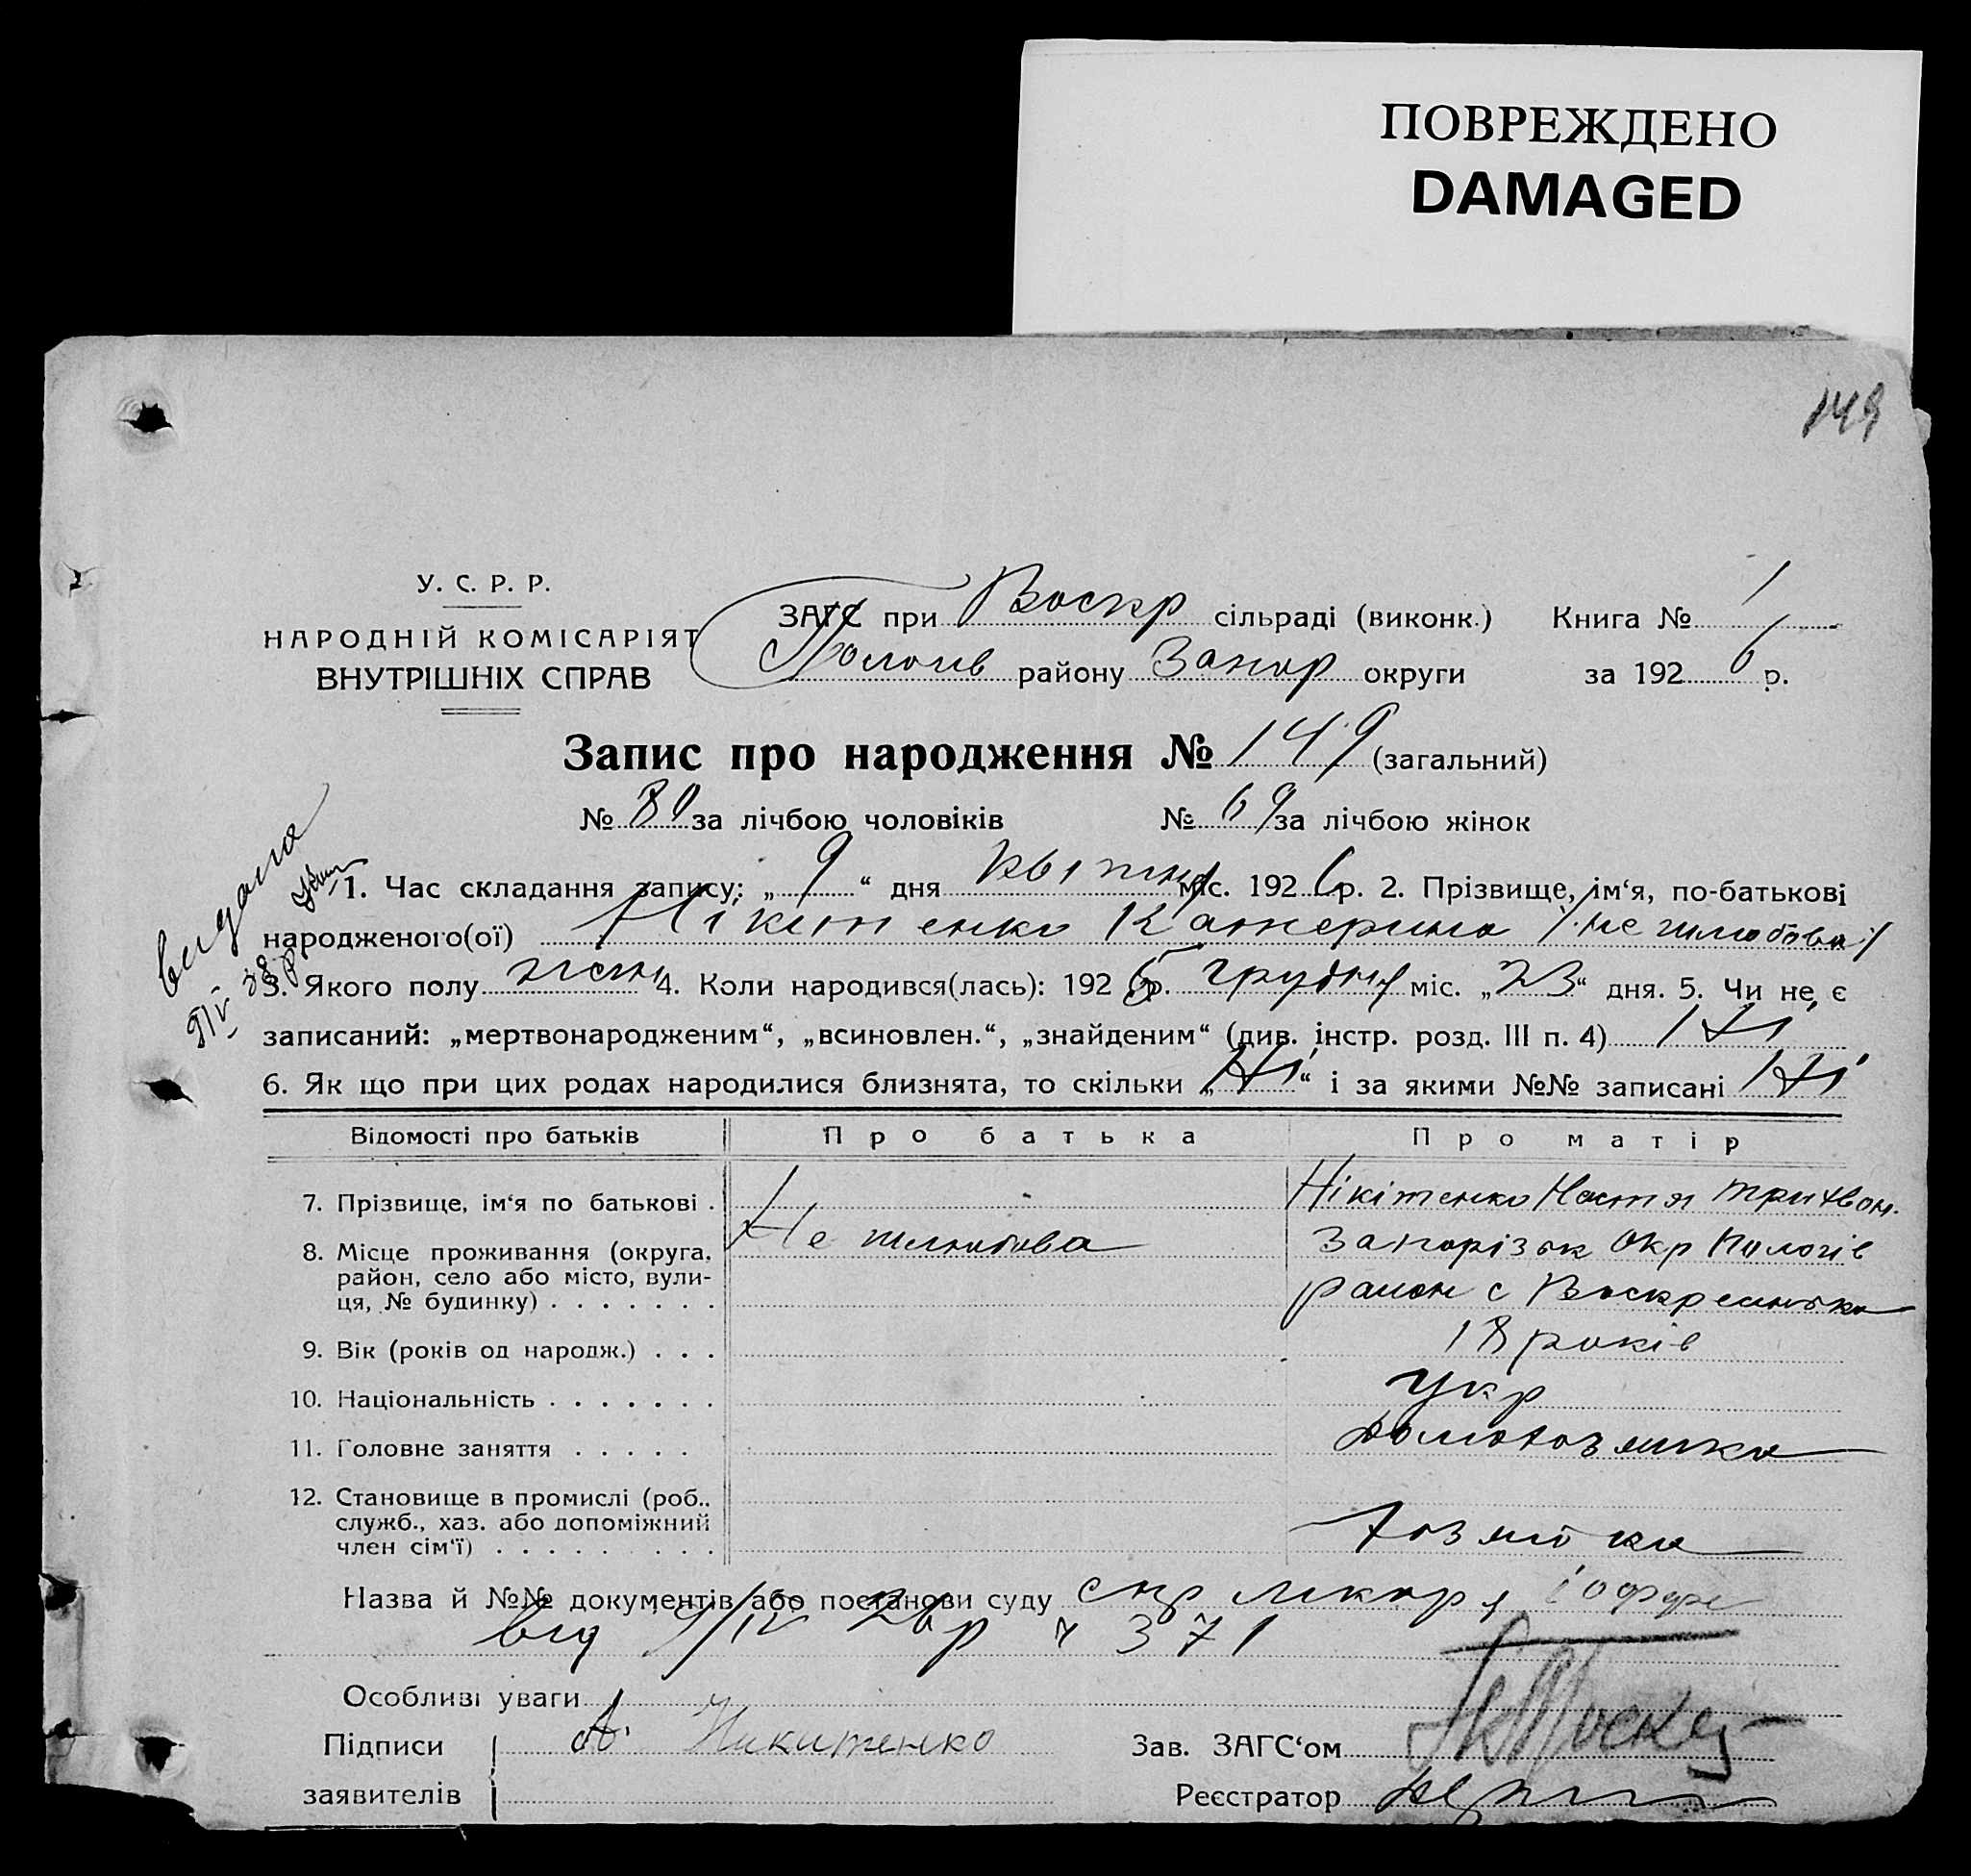 ПОВРЕЖДЕНО
DAMAGED
149
У. С. Р. Р.
НАРОДНІЙ КОМІСАРІЯТ
ВНУТРІШНІХ СПРАВ
ЗАГС при Воскр сільраді (виконк.) Книга № 1
Пологів району Запор округи за 1926 р.
Запис про народження № 149 (загальний)
№ 80 за лічбою чоловіків № 69 за лічбою жінок
видана
1. Час складання запису: „ 9 “ дня квітня міс. 1926 р. 2. Прізвище, ім‘я, по-батькові
народженого(ої) Нікітенко Катерина /не шлюбова/
3. Якого полу жін 4. Коли народився(лась): 1925 р. грудня міс. „ 23 “ дня. 5. Чи не є
записаний: „мертвонародженим“, „всиновлен.“, „знайденим“ (див. інстр. розд. III п. 4) Ні
6. Як що при цих родах народилися близнята, то скільки „ Ні “ і за якими №№ записані Ні
Відомості про батьків Про батька Про матір
7. Прізвище, ім‘я по батькові . Нікітенко Настя Трихвон.
8. Місце проживання (округа, Не шлюбова Запорізьк Окр Пологів
район, село або місто, вули-
ця, № будинку) . . . . . . . район с Воскресенська
9. Вік (років од народж.) . . . 18 років
10. Національність . . . . . . . Укр
11. Головне заняття . . . . . Домохозяйка
12. Становище в промислі (роб.,
служб., хаз. або допоміжний
член сім‘ї) . . . . . . . . . хозяйка
Назва й №№ документів або постанови суду спр лікаря Іоффе
від 9/IV 26 р ч 371
Особливі уваги
Підписи А. Никитенко Зав. ЗАГС‘ом
заявителів Реєстратор